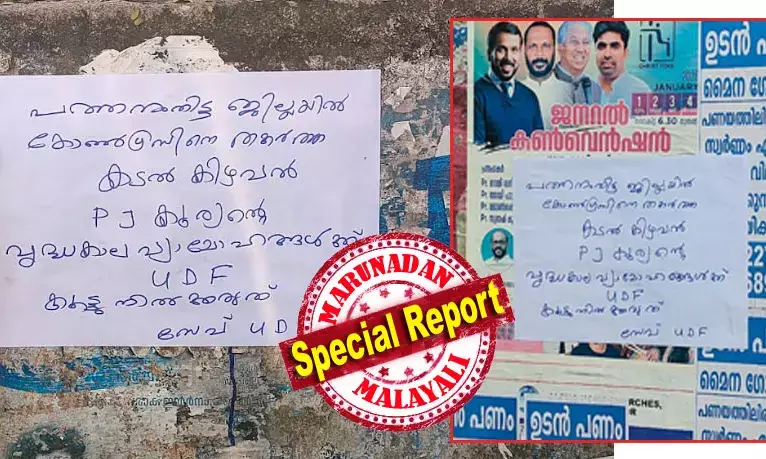 പത്തനംതിട്ട ജില്ലയിൽ
കോൺഗ്രസിനെ തകർത്ത
കടൽ കിഴവൻ
P J കുര്യന്റെ
വൃദ്ധകാല വ്യാമോഹങ്ങൾക്ക്
UDF
കൂട്ടു നിൽക്കരുത്
സേവ് UD
MARUNADAN
Special Report
MALAYALI
JANUARY
1 2 3 4
6.30
ജനറൽ
കൺവെൻഷൻ
പത്തനംതിട്ട ജില്ലയിൽ
കോൺഗ്രസിനെ തകർത്ത
കടൽ കിഴവൻ
P J കുര്യന്റെ
വൃദ്ധകാല വ്യാമോഹങ്ങൾക്ക്
UDF
കൂട്ടു നിൽക്കരുത്
സേവ് UDF
ഉടൻ പ
മൈന ഗോ
പണയത്തിലി
സ്വർണ്ണം എ
വിൽ
മൈന ഗോ
പണയത്തിലി
ഉടൻ പണം